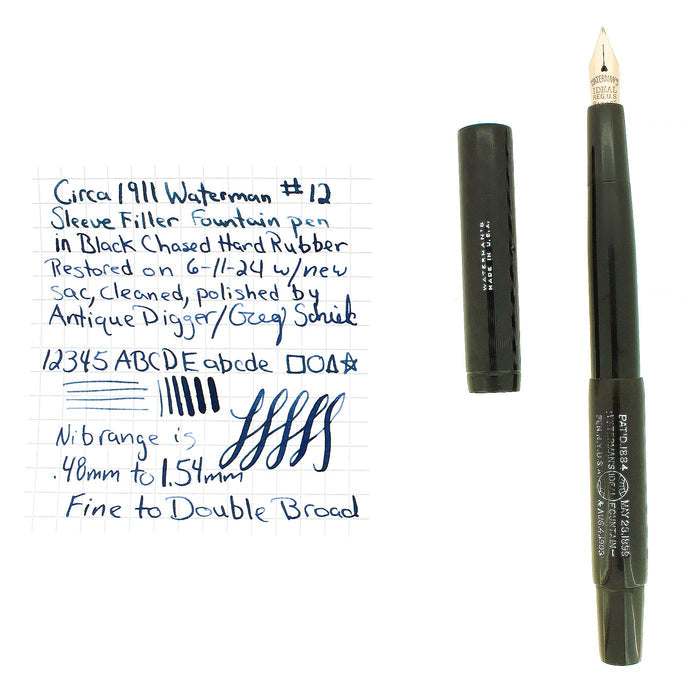 Circa 1911 Waterman #12
Sleeve Filler Fountain pen
in Black Chased Hard Rubber
Restored on 6-11-24 w/new
sac, cleaned, polished by
Antique Digger/Greg
12345 ABCDE abcde
Nib range is
.48mm to 1.54mm
Fine to Double Broad
WATERMAN'S
MADE IN U.S.A.
WATERMAN'S
IDEAL
REG. U.S.
PAT'D. 1884 MAY 23, 1899
WATERMAN'S IDEAL FOUNTAIN
PEN, N.Y. U.S.A. & AUG. 4, 1903